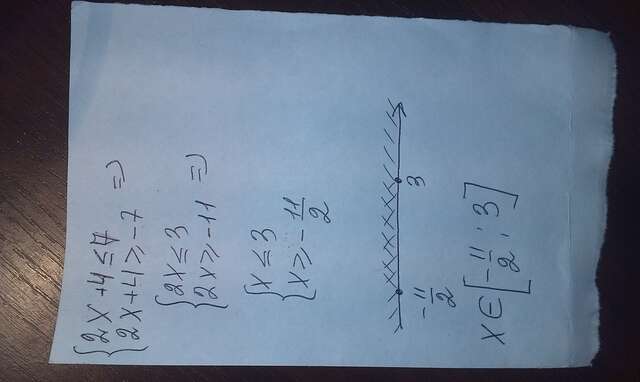 {2x+4≤7
{2x+4≥-7 =>
{2x≤3
{2x≥-11 =>
{x≤3
{x≥-11/2
-11/2 3
x∈[-11/2; 3]